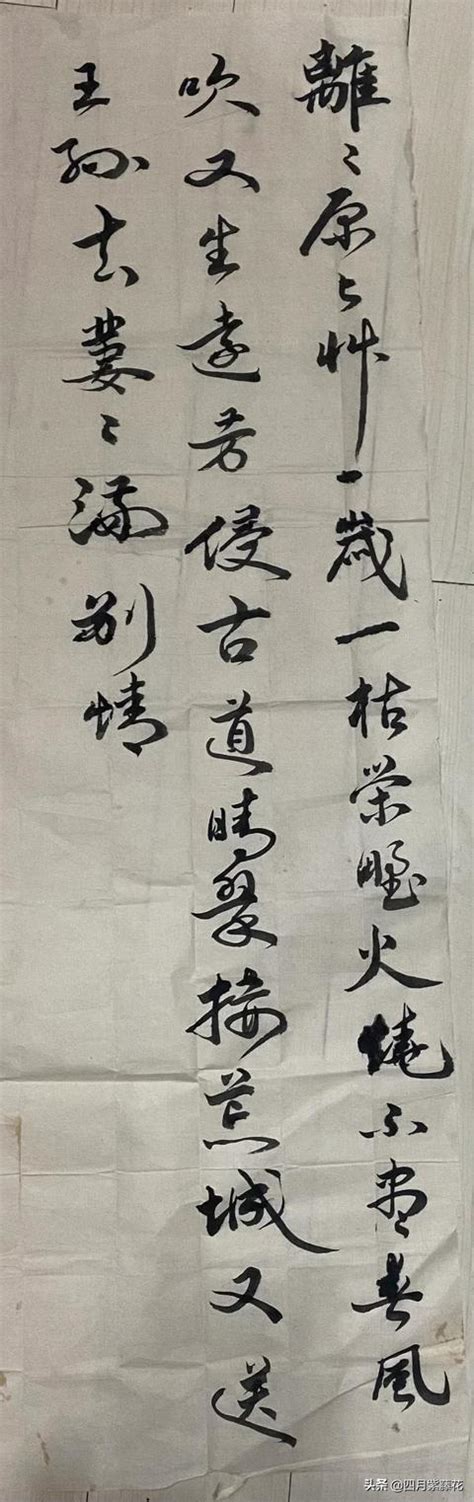 離〻原上艸一歲一枯榮野火燒不盡春風
吹又生遠芳侵古道晴翠接荒城又送
王孫去萋〻滿別情
头条 @四月紫藤花